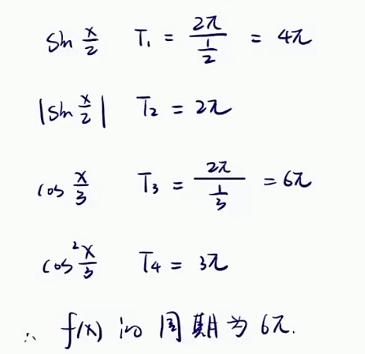 sin x/2 T₁ = 2π/(1/2) = 4π
|sin x/2| T₂ = 2π
cos x/3 T₃ = 2π/(1/3) = 6π
cos² x/3 T₄ = 3π
∴ f(x) 的 周期为 6π.